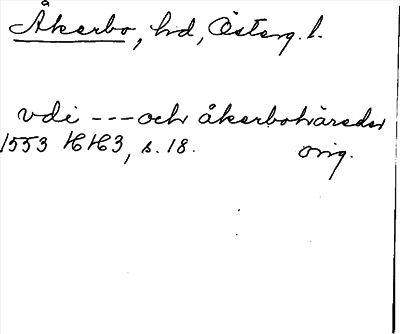 Åkerbo, hd, Österg. l.
vdi --- och åkerbohäreder
1553 HH3, s. 18. orig.